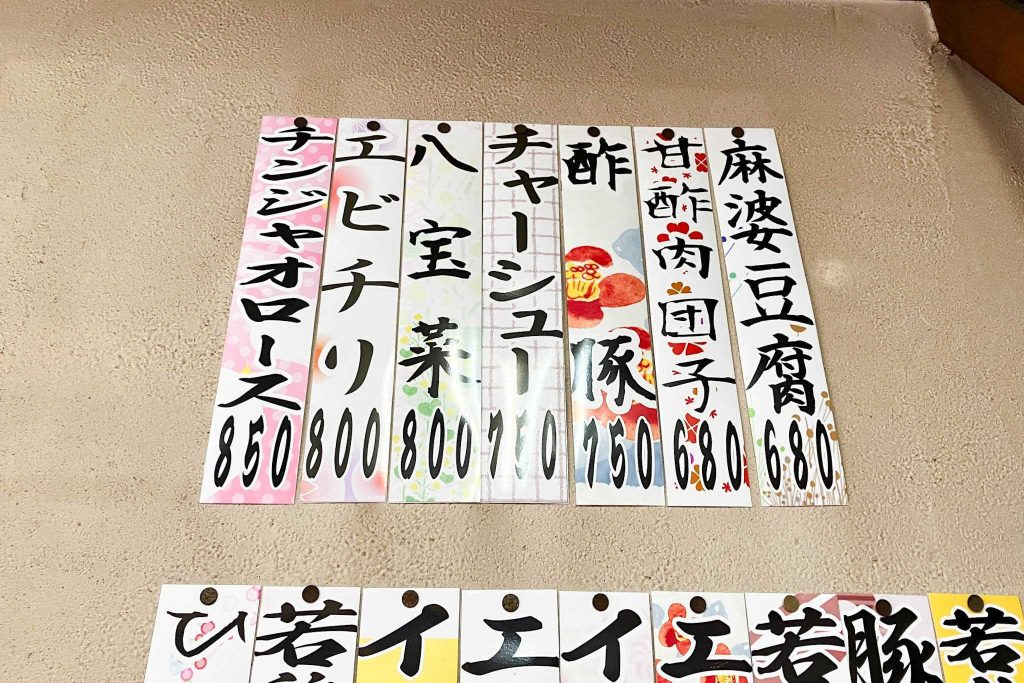 麻婆豆腐 680
甘酢肉団子 680
酢豚 750
チャーシュー 750
八宝菜 800
エビチリ 800
チンジャオロース 850
若
豚
若
エ
イ
エ
イ
若
ひ